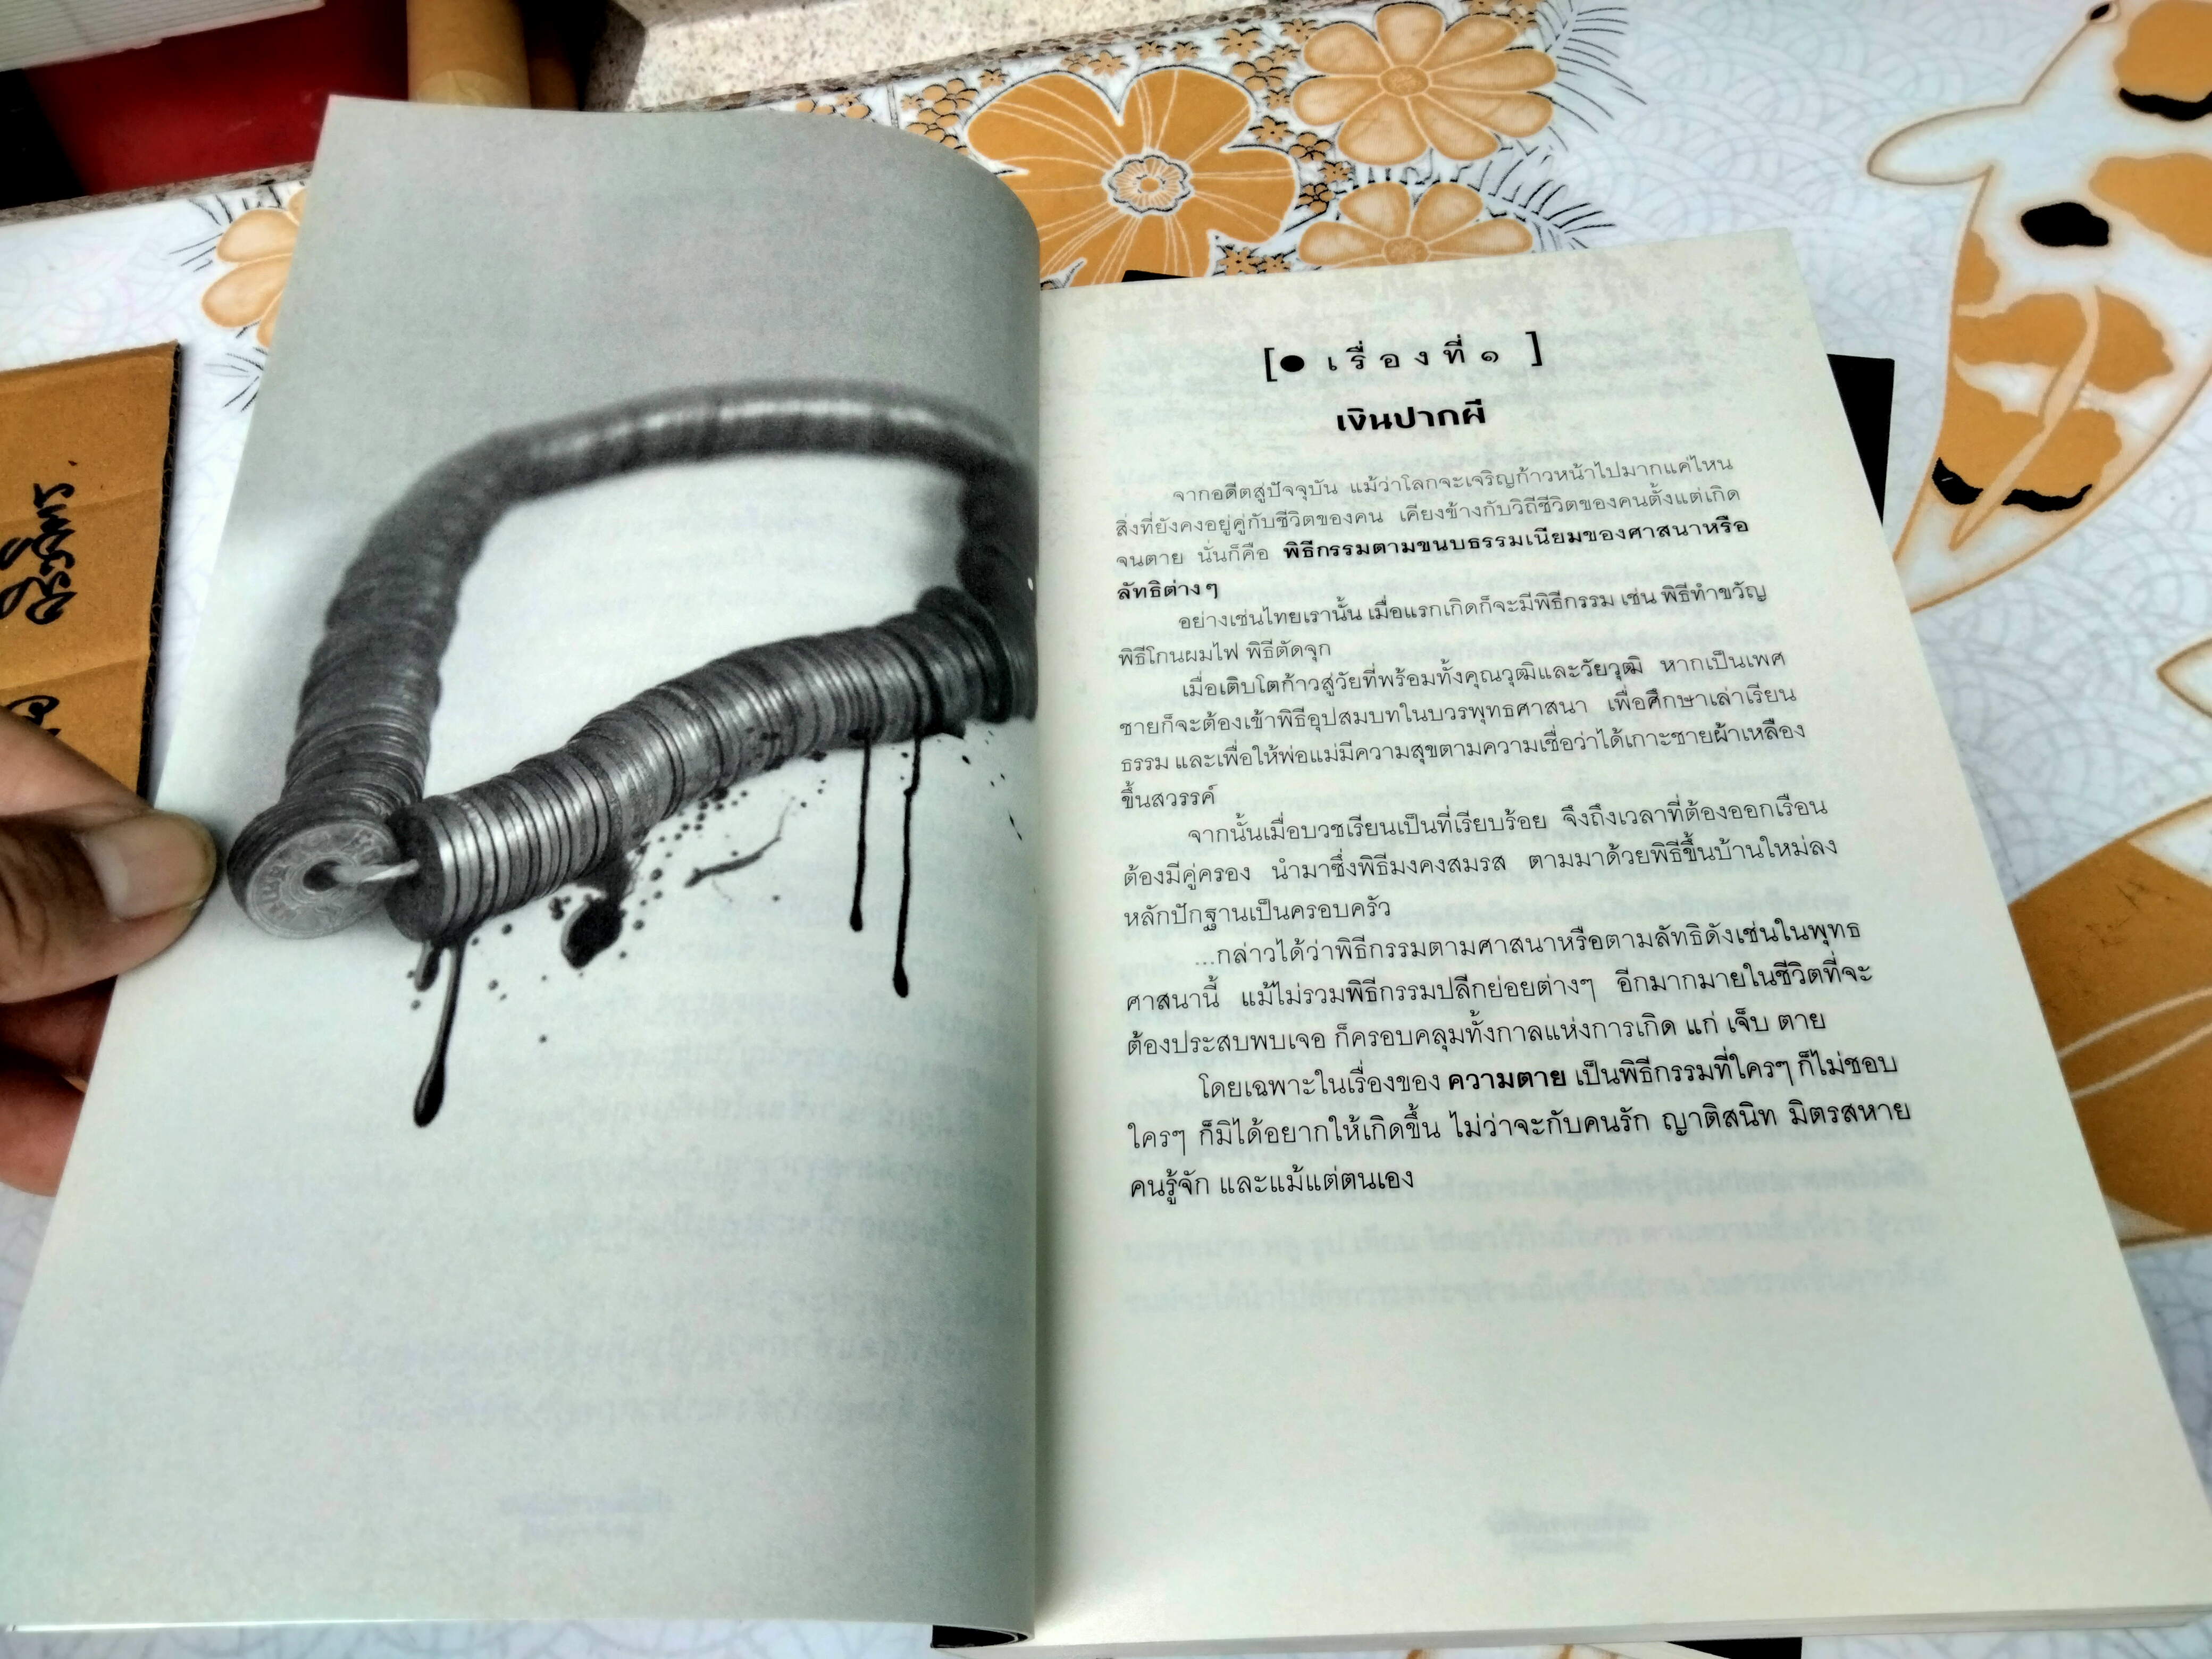 [● เรื่องที่ ๑ ]
เงินปากผี
จากอดีตสู่ปัจจุบัน แม้ว่าโลกจะเจริญก้าวหน้าไปมากแค่ไหน
สิ่งที่ยังคงอยู่คู่กับชีวิตของคน เคียงข้างกับวิถีชีวิตของคนตั้งแต่เกิด
จนตาย นั่นก็คือ พิธีกรรมตามขนบธรรมเนียมของศาสนาหรือ
ลัทธิต่างๆ
อย่างเช่นไทยเรานั้น เมื่อแรกเกิดก็จะมีพิธีกรรม เช่น พิธีทำขวัญ
พิธีโกนผมไฟ พิธีตัดจุก
เมื่อเติบโตก้าวสู่วัยที่พร้อมทั้งคุณวุฒิและวัยวุฒิ หากเป็นเพศ
ชายก็จะต้องเข้าพิธีอุปสมบทในบวรพุทธศาสนา เพื่อศึกษาเล่าเรียน
ธรรม และเพื่อให้พ่อแม่มีความสุขตามความเชื่อว่าได้เกาะชายผ้าเหลือง
ขึ้นสวรรค์
จากนั้นเมื่อบวชเรียนเป็นที่เรียบร้อย จึงถึงเวลาที่ต้องออกเรือน
ต้องมีคู่ครอง นำมาซึ่งพิธีมงคงสมรส ตามมาด้วยพิธีขึ้นบ้านใหม่ลง
หลักปักฐานเป็นครอบครัว
...กล่าวได้ว่าพิธีกรรมตามศาสนาหรือตามลัทธิดังเช่นในพุทธ
ศาสนานี้ แม้ไม่รวมพิธีกรรมปลีกย่อยต่างๆ อีกมากมายในชีวิตที่จะ
ต้องประสบพบเจอ ก็ครอบคลุมทั้งกาลแห่งการเกิด แก่ เจ็บ ตาย
โดยเฉพาะในเรื่องของ ความตาย เป็นพิธีกรรมที่ใครๆ ก็ไม่ชอบ
ใครๆ ก็มิได้อยากให้เกิดขึ้น ไม่ว่าจะกับคนรัก ญาติสนิท มิตรสหาย
คนรู้จัก และแม้แต่ตนเอง